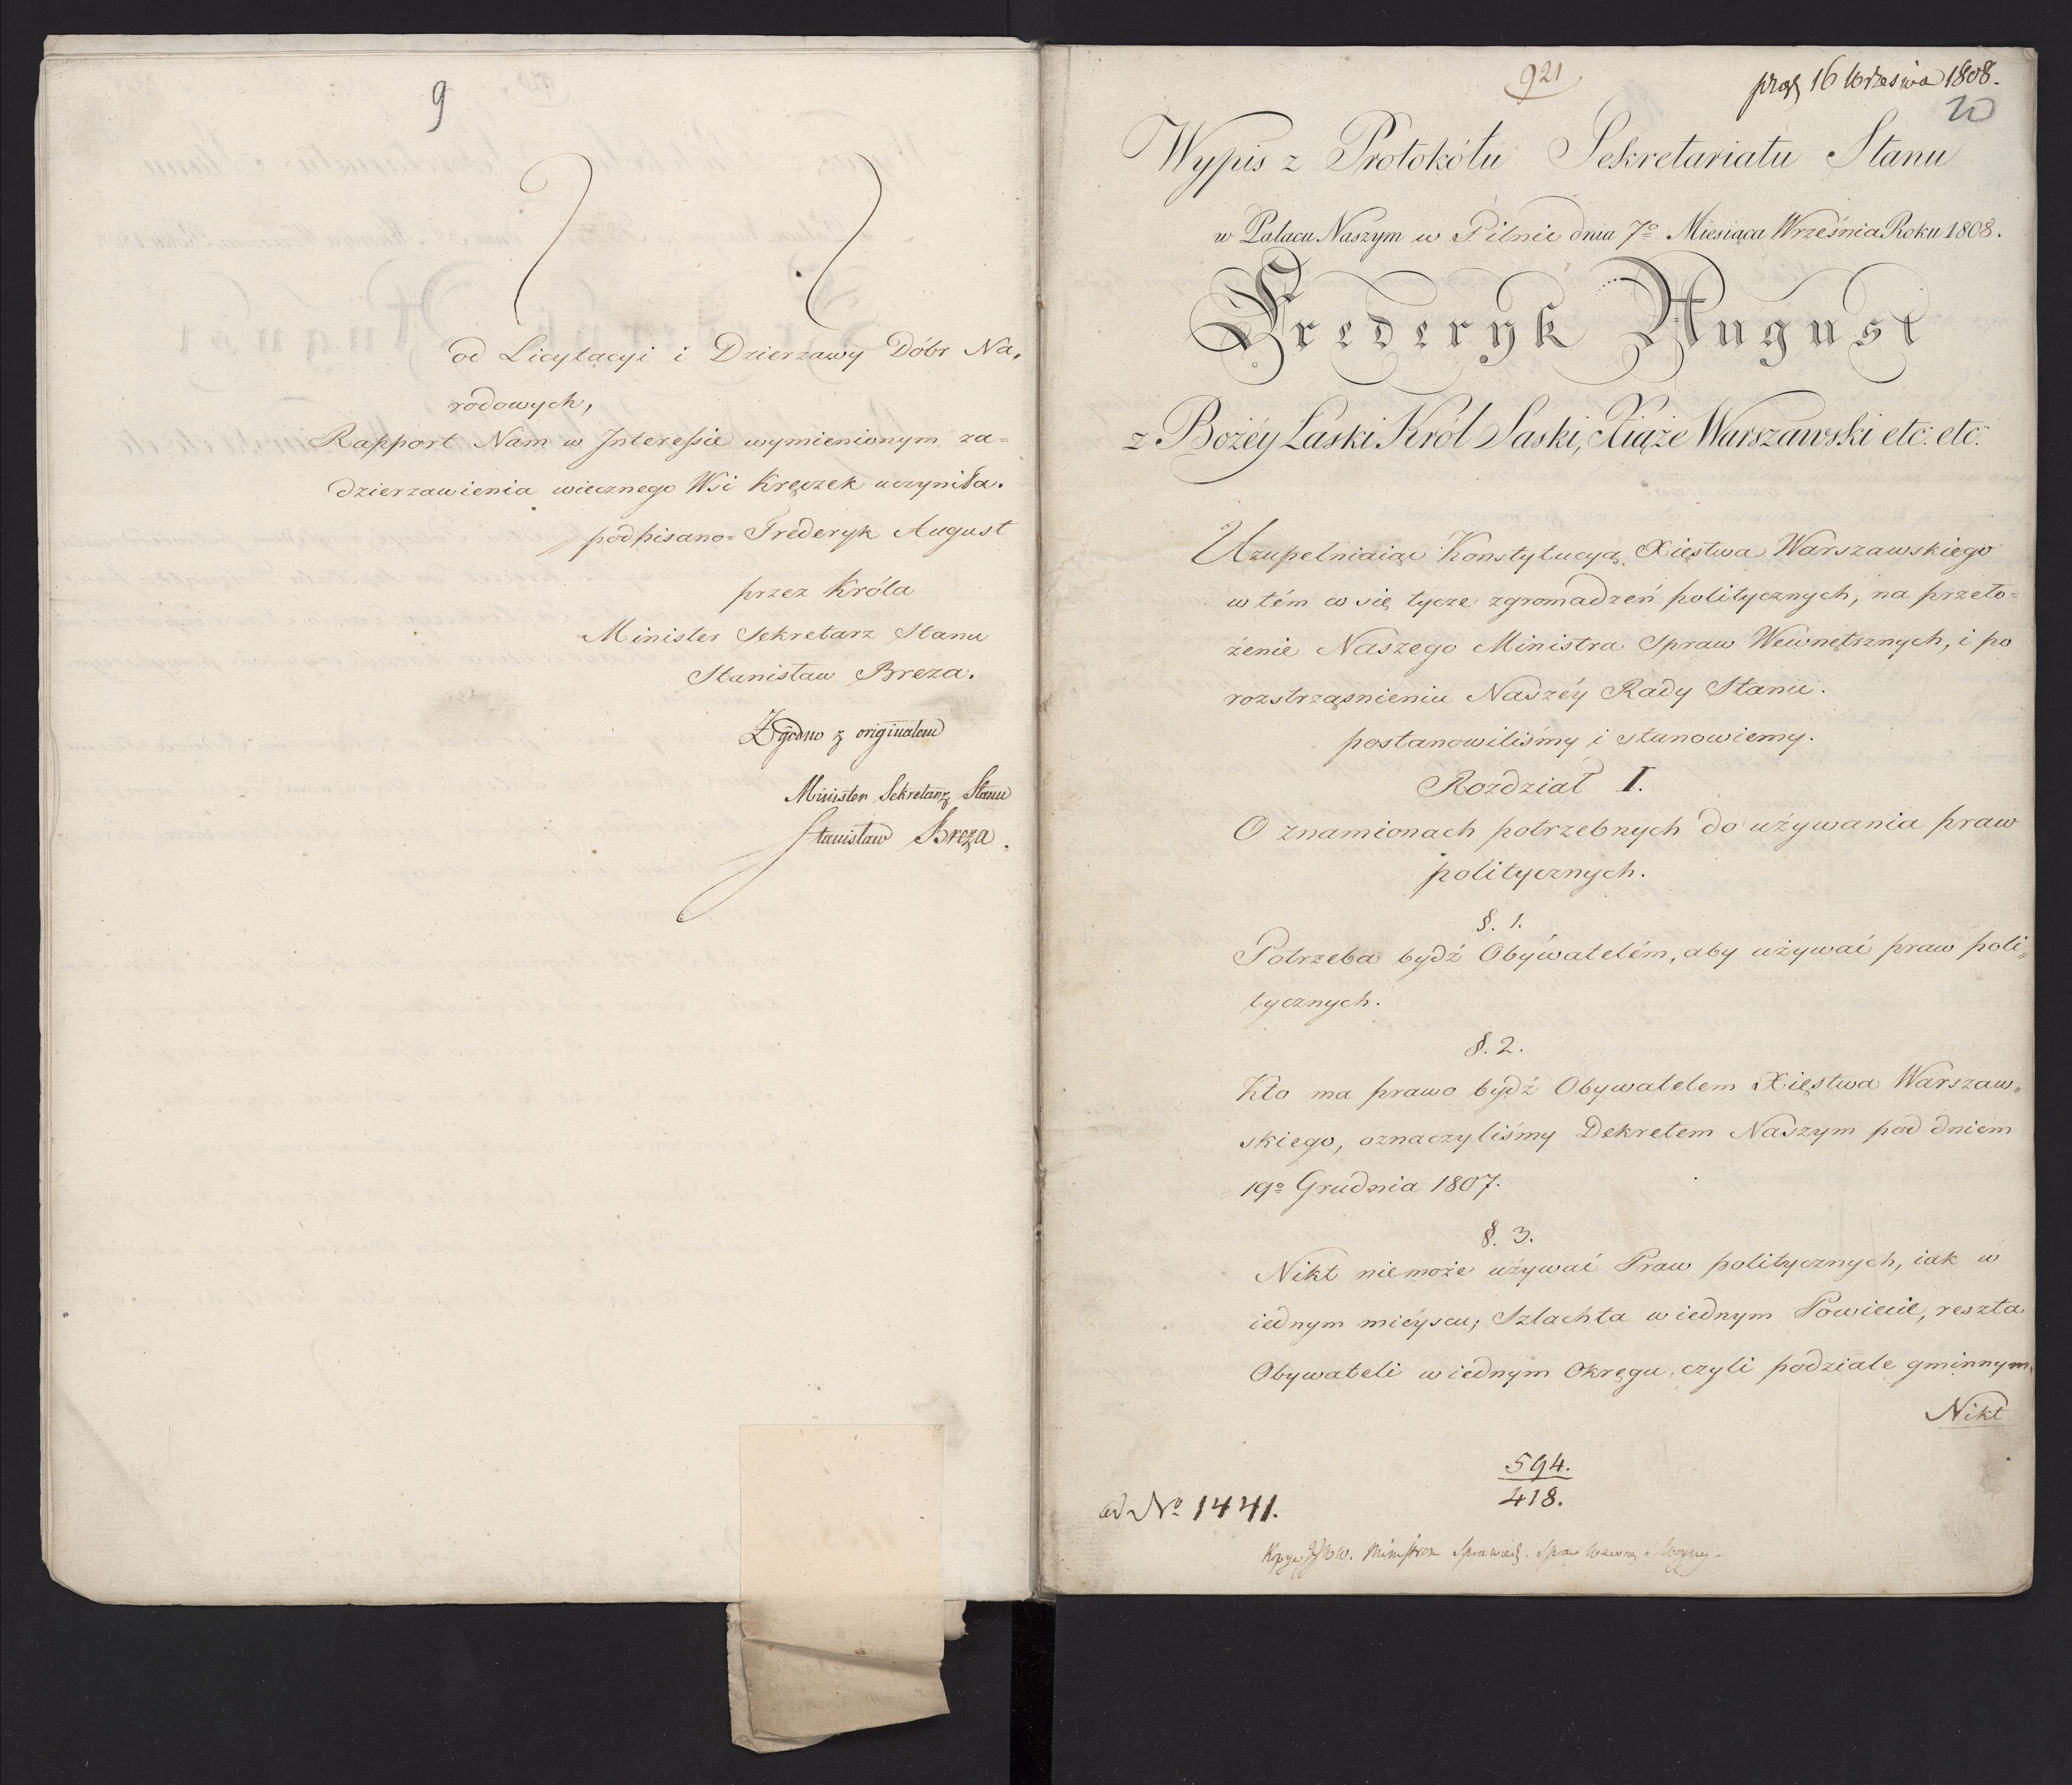 9
od Licytacyi i Dzierzawy Dóbr Na„
rodowych,
Rapport Nam w Interessie wymienionym za=
dzierzawienia wiecznego Wsi Kręczek uczyniła.
podpisano= Frederyk August
przez Króla
Minister Sekretarz Stanu
Stanisław Breza.
Zgodno z originałem
Minister Sekretarz Stanu
Stanisław Breza.
921
praes 16 Września 1808.
10
Wypis z Protokółu Sekretariatu Stanu
w Pałacu Naszym w Pilnie dnia 7º Miesiąca Września Roku 1808.
Frederyk August
z Bożéy Łaski Król Saski, Xiąże Warszawski etc: etc:
Uzupełniaiąc Konstytucyą Xięstwa Warszawskiego
w tém co się tycze zgromadzeń politycznych, na przeło=
żenie Naszego Ministra Spraw Wewnętrznych, i po
rozstrząśnieniu Naszéy Rady Stanu.
postanowiliśmy i stanowiemy.
Rozdział I.
O znamionach potrzebnych do używania praw
politycznych.
§. 1.
Potrzeba bydź Obywatelém, aby używać praw poli„
tycznych.
§. 2.
Kto ma prawo bydź Obywatelem Xięstwa Warszaw„
skiego, oznaczyliśmy Dekretem Naszym pod dniem
19º Grudnia 1807.
§. 3.
Nikt niemoże używać Praw politycznych, iak w
iednym mieyscu; Szlachta w iednym Powiecie, reszta
Obywateli w iednym Okręgu, czyli podziale gminnym.
Nikt
594.
418.
ad Nº 1441.
Ministrom Sprawied. Spraw Wewnę. i Woyny.